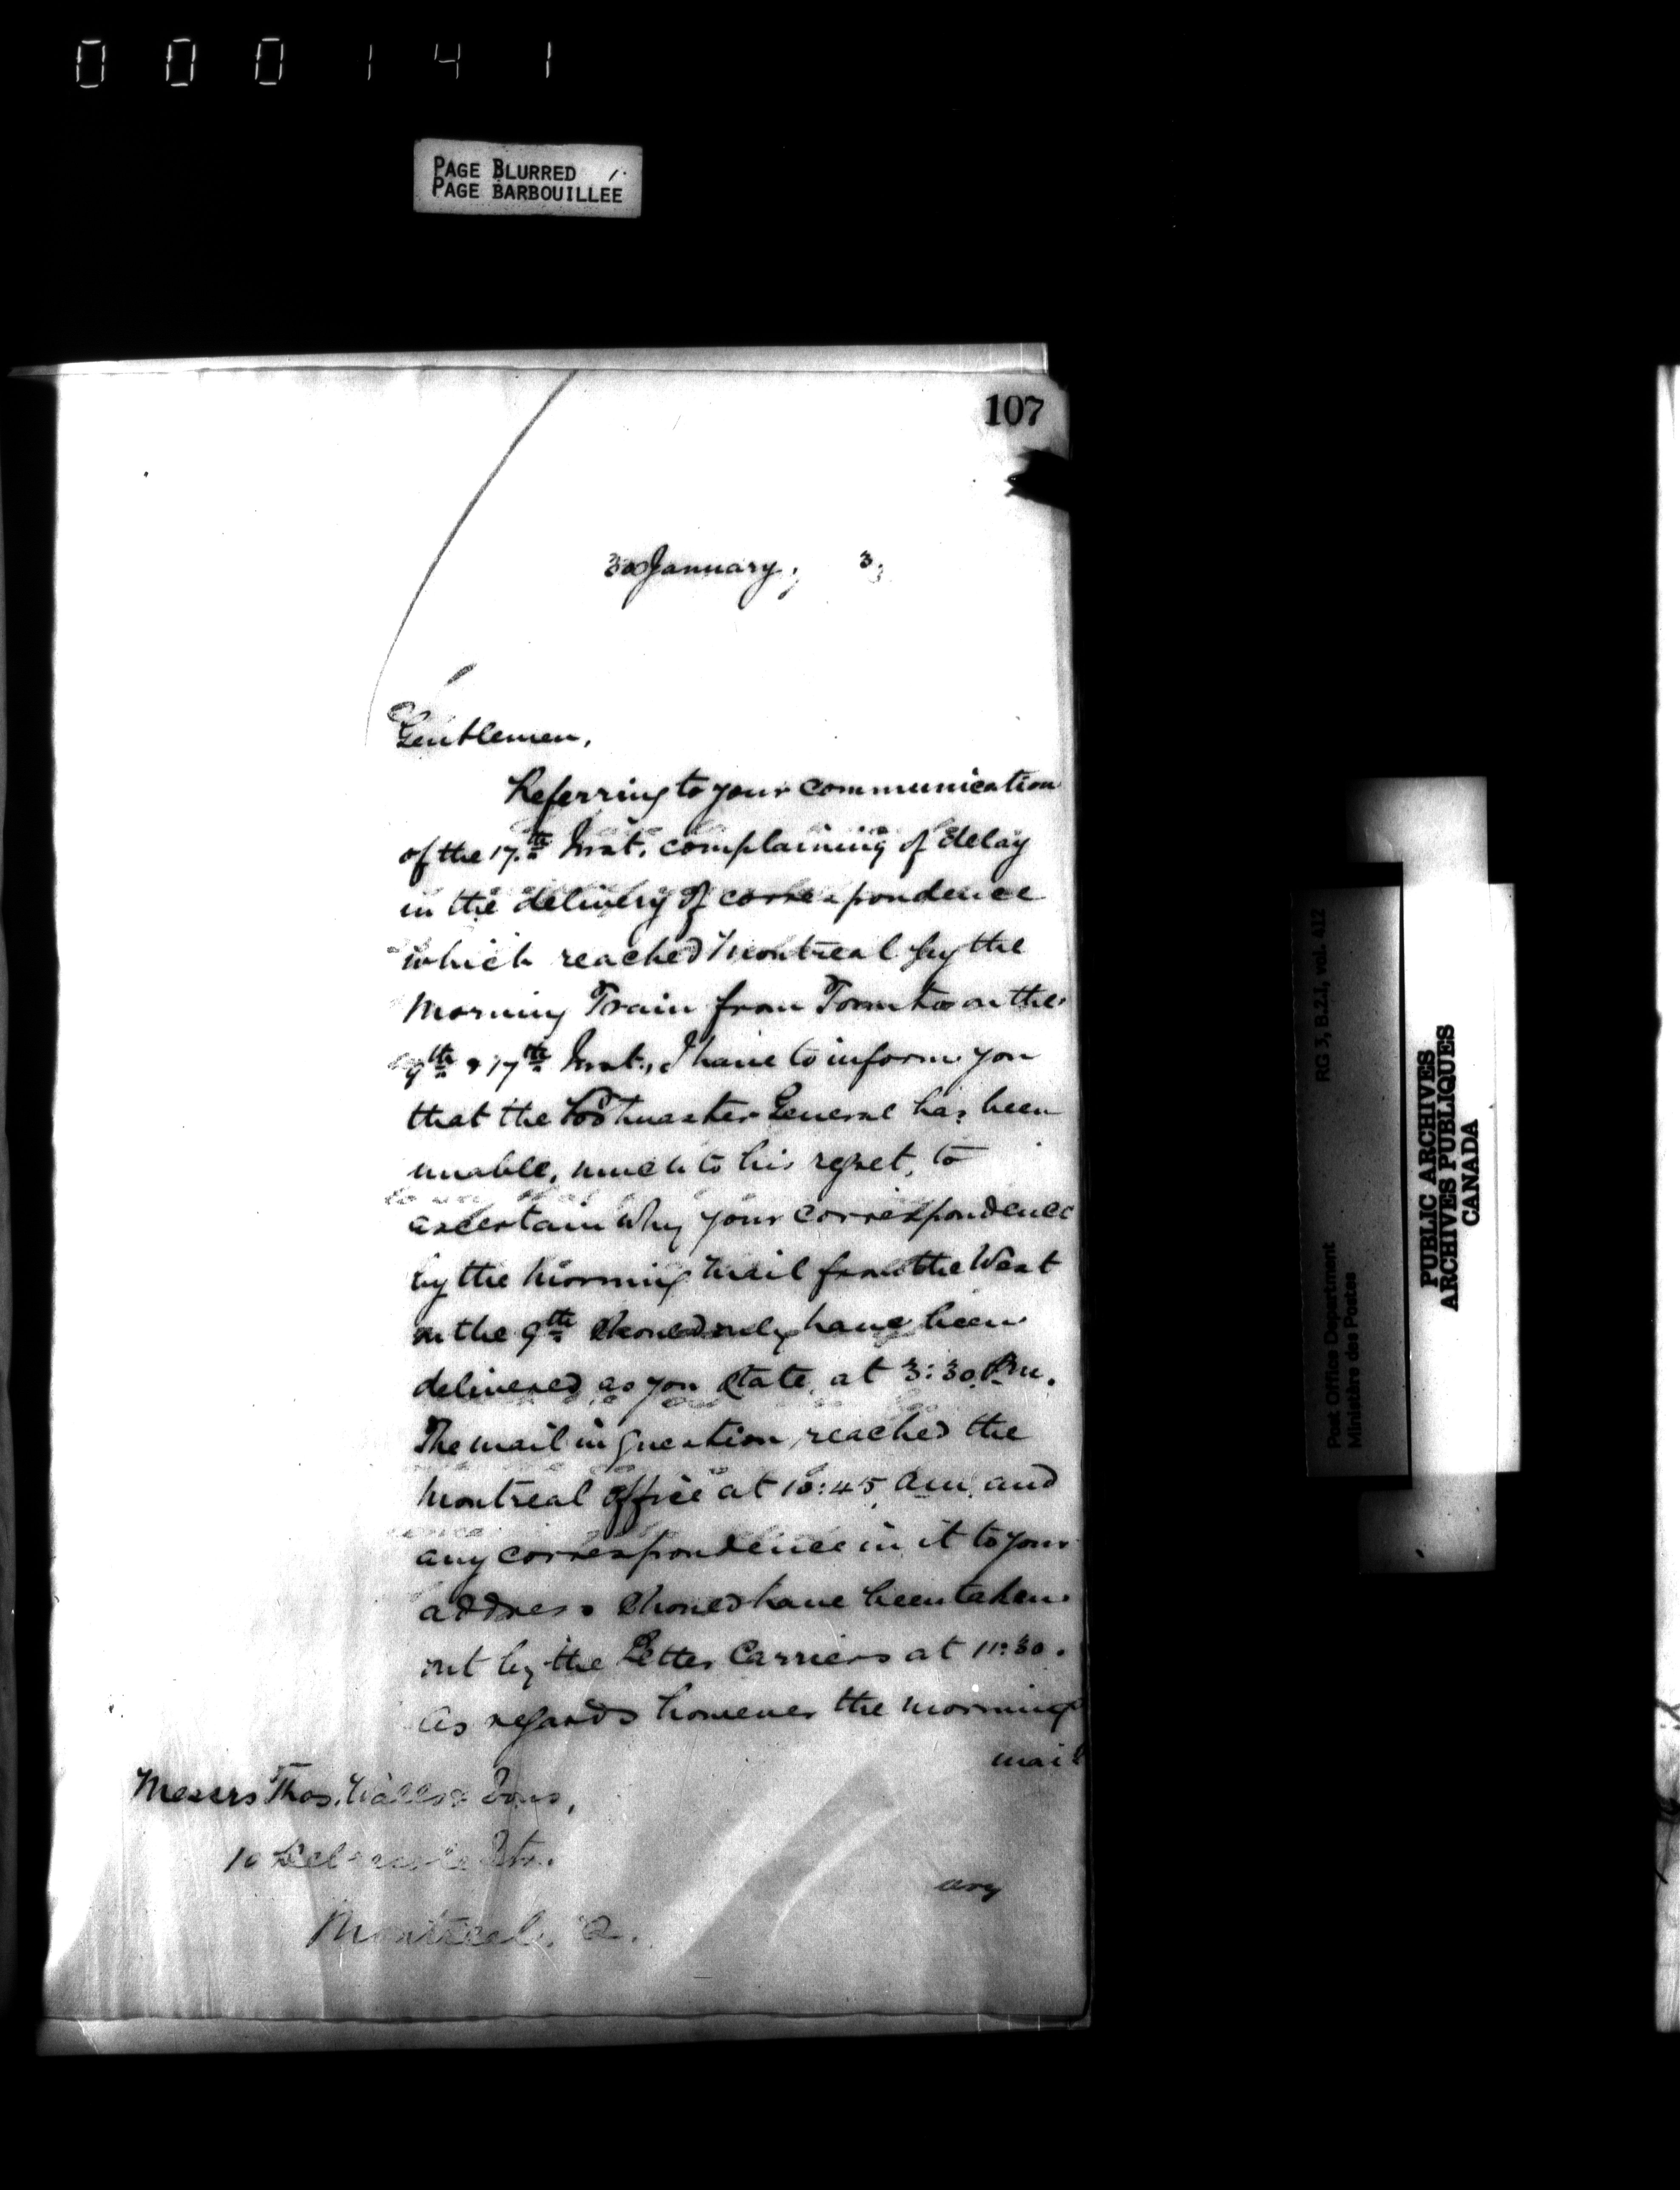 000141
PAGE BLURRED
PAGE BARBOUILLEE
107
30 January, 3,
Gentlemen,
Referring to your communication
of the 17th Inst. complaining of delay
in the delivery of correspondence
which reached Montreal by the
Morning Train from Toronto on the
9th & 17th Inst., I have to inform you
that the Postmaster General has been
unable, much to his regret, to
ascertain why your correspondence
by the morning mail from the West
on the 9th should only have been
delivered as you state, at 3:30 P.m.
The mail in question reached the
Montreal office at 10:45 a.m. and
any correspondence in it to your
address should have been taken
out by the Letter Carriers at 11:30.
As regards however the morning
mail
Messrs Thos. & Sons,
10
Montreal, Q.
ary
RG 3, B.2.1, vol. 412
Post Office Department
Ministère des Postes
PUBLIC ARCHIVES
ARCHIVES PUBLIQUES
CANADA